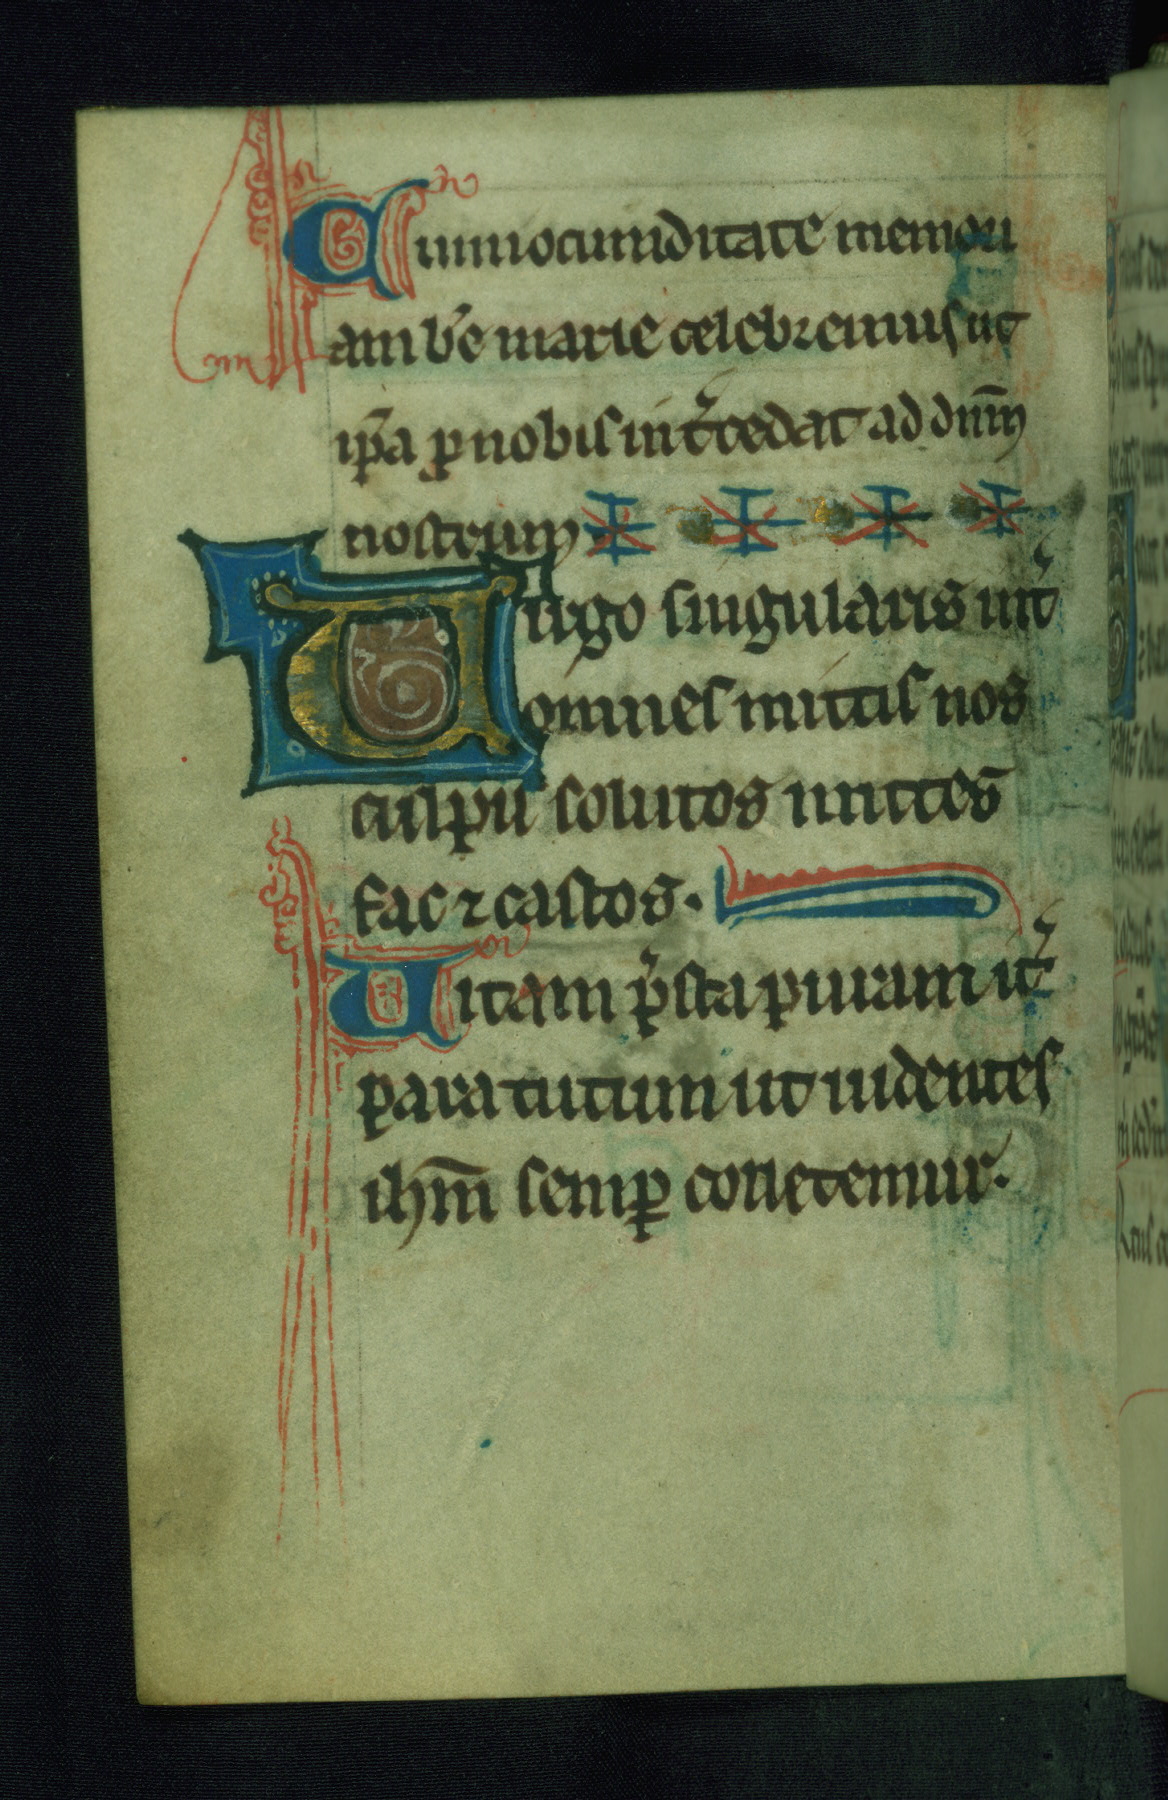 Cum iocunditate memori
am bẽ marie celebremus ut
ip̃a ꝓ nobis int̾cedat ad dnm̃
nostrum
Uirgo singularis int̾
omnes mittis nos
culpis solutos mittes
fac ⁊ castos.
Uitam p̾sta puram it̾
para tutum ut uidentes
ihm̃ semꝑ colletemur.